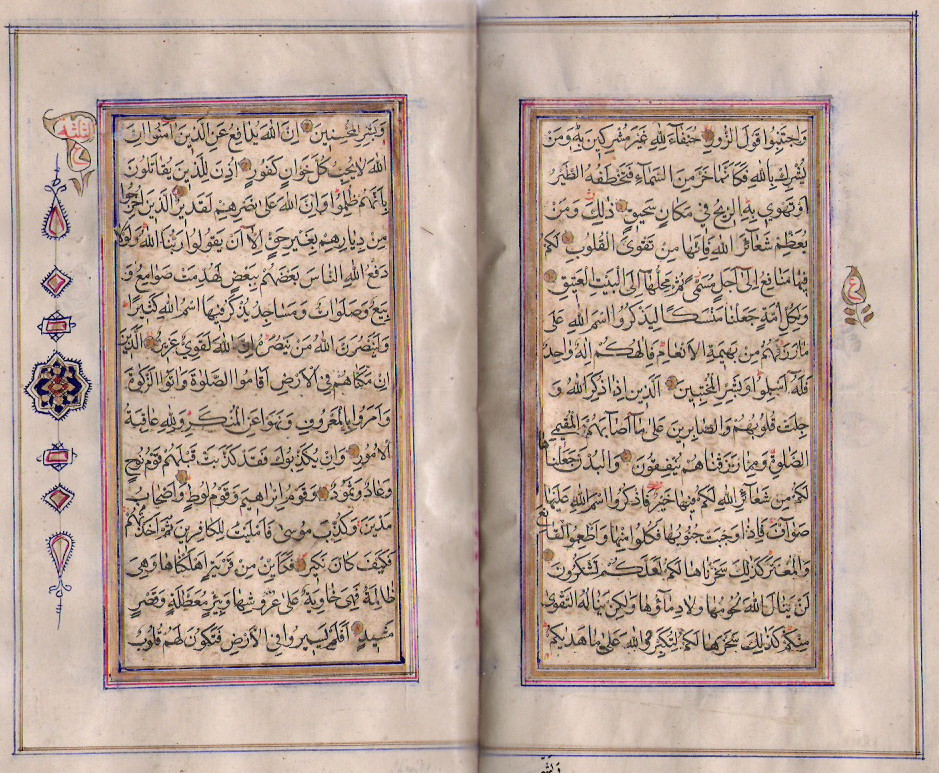 واجتنبوا قول الزور حنفاء لله غير مشركين به ومن
يشرك بالله فكانما خر من السماء فتخطفه الطير
او تهوي به الريح في مكان سحيق ذلك ومن
يعظم شعائر الله فانها من تقوى القلوب لكم
فيها منافع الى اجل مسمى ثم محلها الى البيت العتيق
ولكل امة جعلنا منسكا ليذكروا اسم الله على
ما رزقهم من بهيمة الانعام فالهكم اله واحد
فله اسلموا وبشر المخبتين الذين اذا ذكر الله و
جلت قلوبهم والصابرين على ما اصابهم والمقيمي
الصلوة ومما رزقناهم ينفقون والبدن جعلناها
لكم من شعائر الله لكم فيها خير فاذكروا اسم الله عليها
صواف فاذا وجبت جنوبها فكلوا منها واطعموا القانع
والمعتر كذلك سخرناها لكم لعلكم تشكرون
لن ينال الله لحومها ولا دماؤها ولكن يناله التقوى
منكم كذلك سخرها لكم لتكبروا الله على ما هديكم
وبشر
وبشر المحسنين ان الله يدافع عن الذين آمنوا ان
الله لا يحب كل خوان كفور اذن للذين يقاتلون
بانهم ظلموا وان الله على نصرهم لقدير الذين اخرجوا
من ديارهم بغير حق الا ان يقولوا ربنا الله ولولا
دفع الله الناس بعضهم ببعض لهدمت صوامع و
بيع وصلوات ومساجد يذكر فيها اسم الله كثيرا
ولينصرن الله من ينصره ان الله لقوي عزيز الذين
ان مكناهم في الارض اقاموا الصلوة واتوا الزكوة
وامروا بالمعروف ونهوا عن المنكر ولله عاقبة
الامور وان يكذبوك فقد كذبت قبلهم قوم نوح
وعاد وثمود وقوم ابراهيم وقوم لوط واصحاب
مدين وكذب موسى فامليت للكافرين ثم اخذتهم
فكيف كان نكير فكاين من قرية اهلكناها وهي
ظالمة فهي خاوية على عروشها وبئر معطلة وقصر
مشيد افلم يسيروا في الارض فتكون لهم قلوب